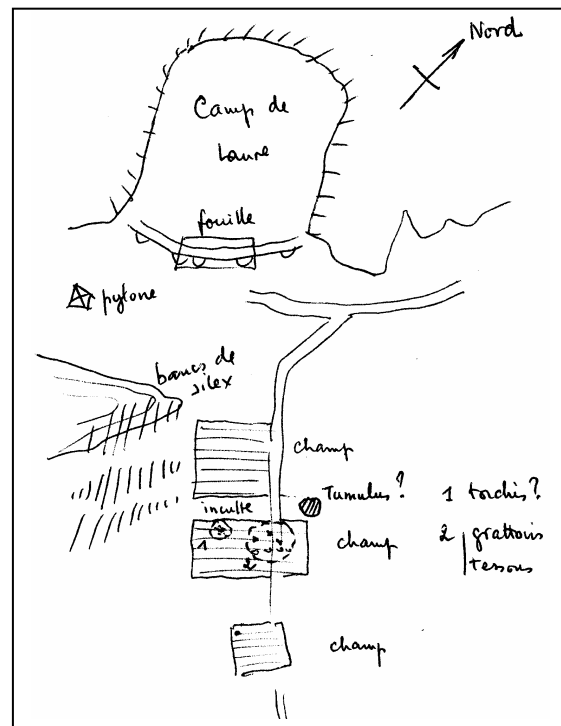 Nord
Camp de
Laure
fouille
pylone
bancs de
silex
champ
Tumulus?
1 torchis?
inculte
1
2
champ
2 grattoirs
tessons
champ